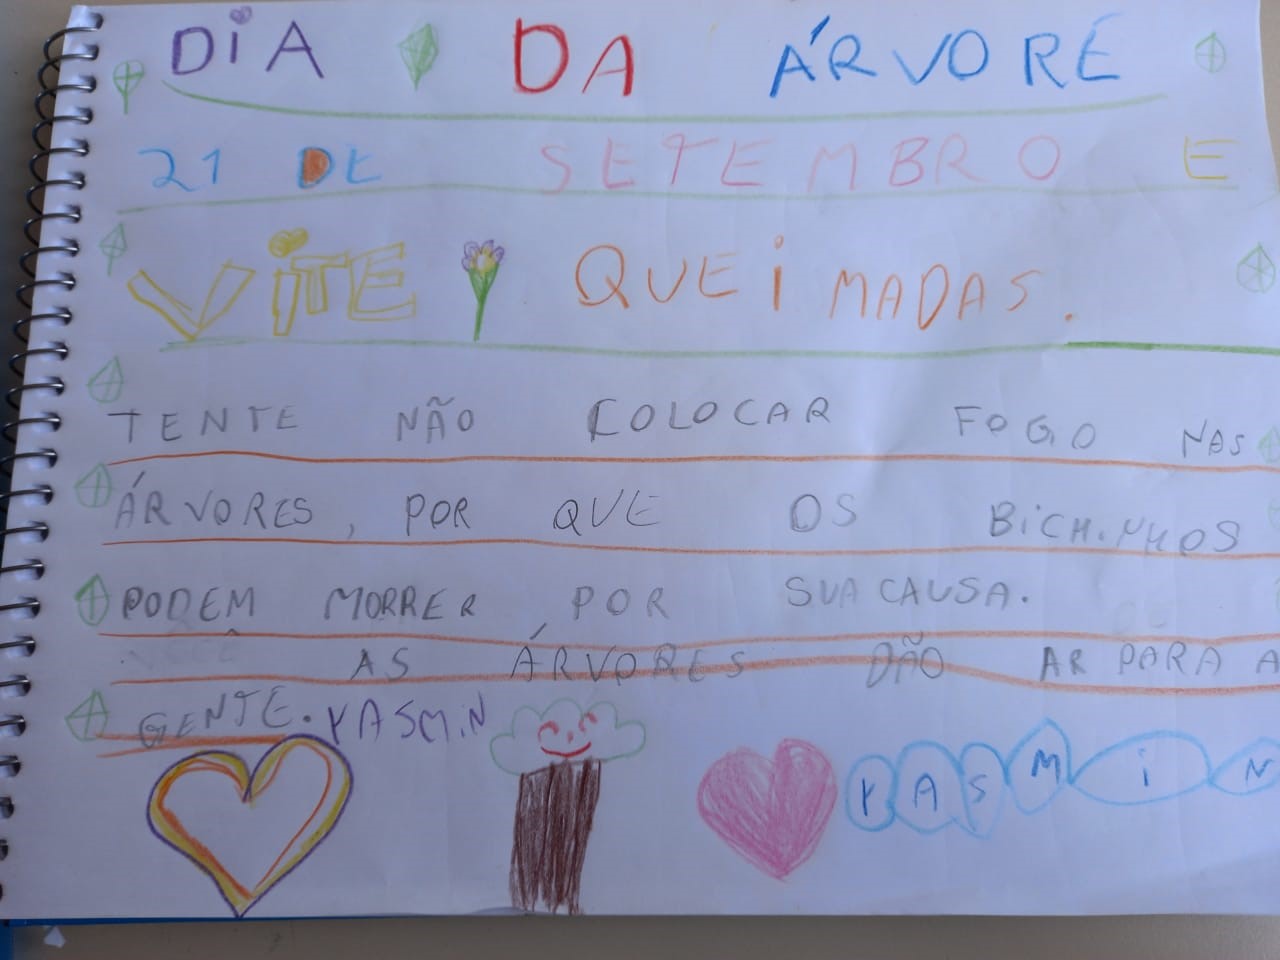 DiA DA ÁRVORE
21 DE SETEMBRO E
ViTE QUEiMADAS.
TENTE NÃO COLOCAR FOGO NAS
ÁRVORES, POR QUE OS BiCHiNHOS
PODEM MORRER POR SUA CAUSA.
AS ÁRVORES DÃO AR PARA A
GENTE. YASMiN
YASMiN